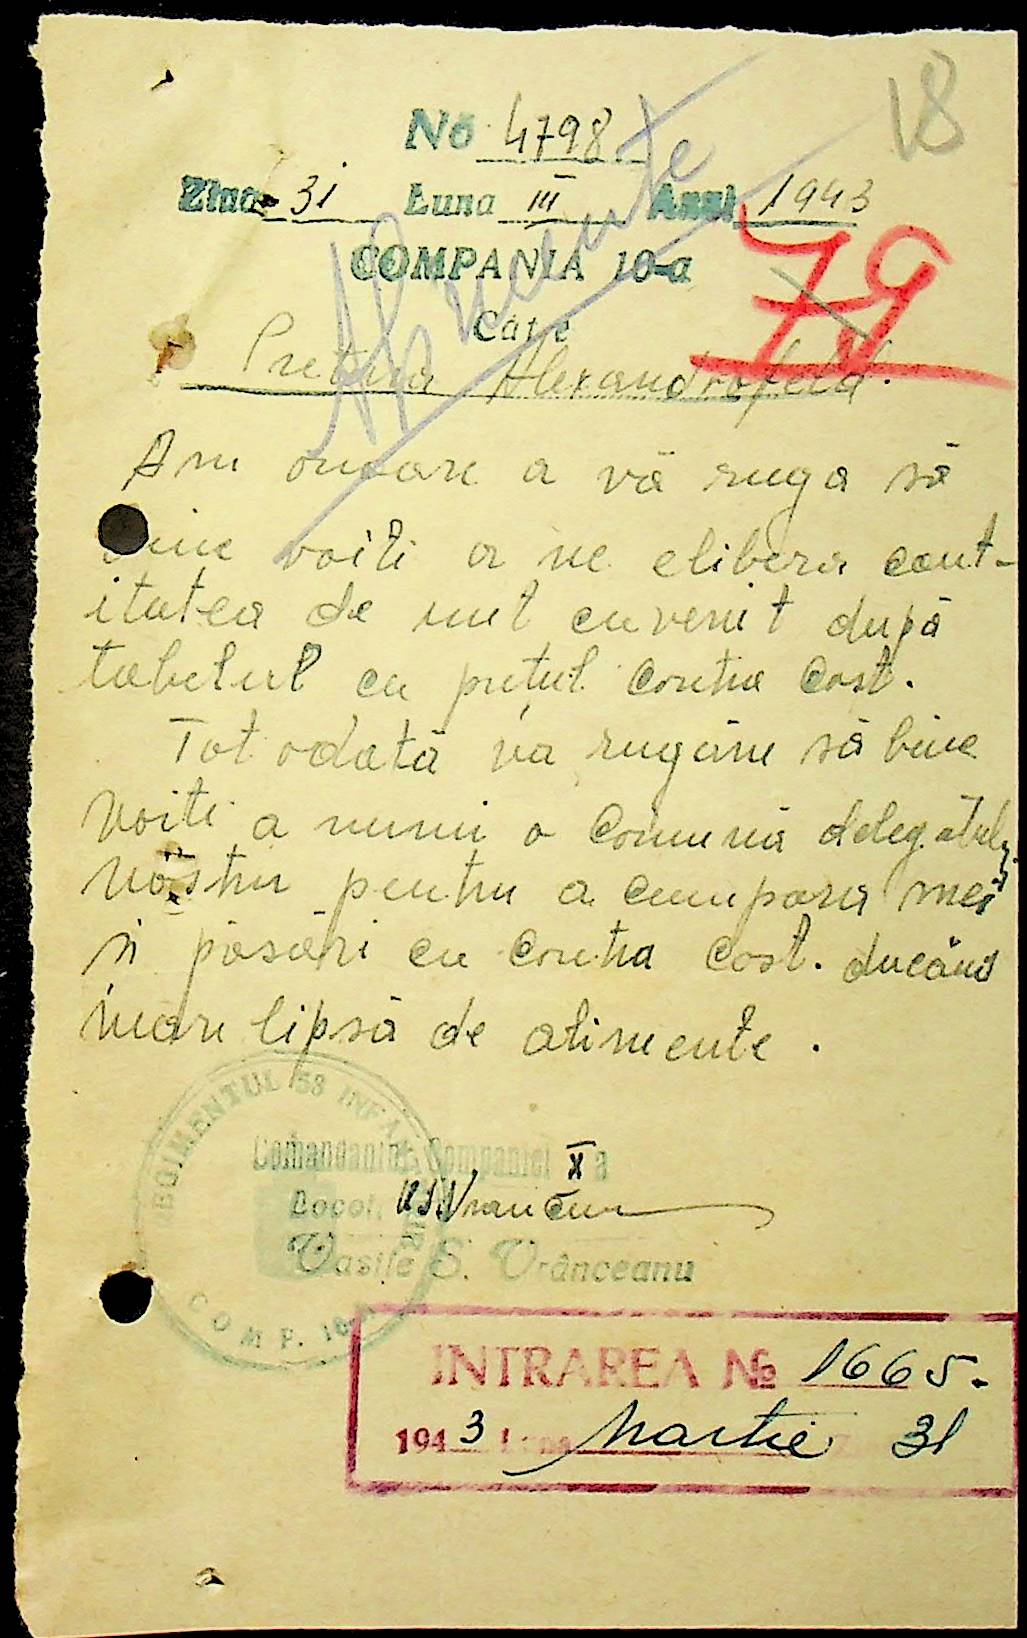 18
No 4798
Ziua 31 Luna III Anul 1943
COMPANIA 10-a
79
Către
Pretura Alexandrofeld.
Am onoare a vă ruga să
bine voiti a ne elibera cant-
itatea de unt cuvenit după
tabelul cu prețul contra cost.
Tot odată vă rugăm să bine
voiti a numi o comună delegatului
nostru pentru a cumpara
si păsări cu contra cost. ducând
mare lipsă de alimente.
REGIMENTUL 53 INFAN
COMP. 10-a
Comandantul Companiei X a
Locot.
Vasile S. Vrânceanu
INTRAREA No 1665.
1943 Luna Martie 31